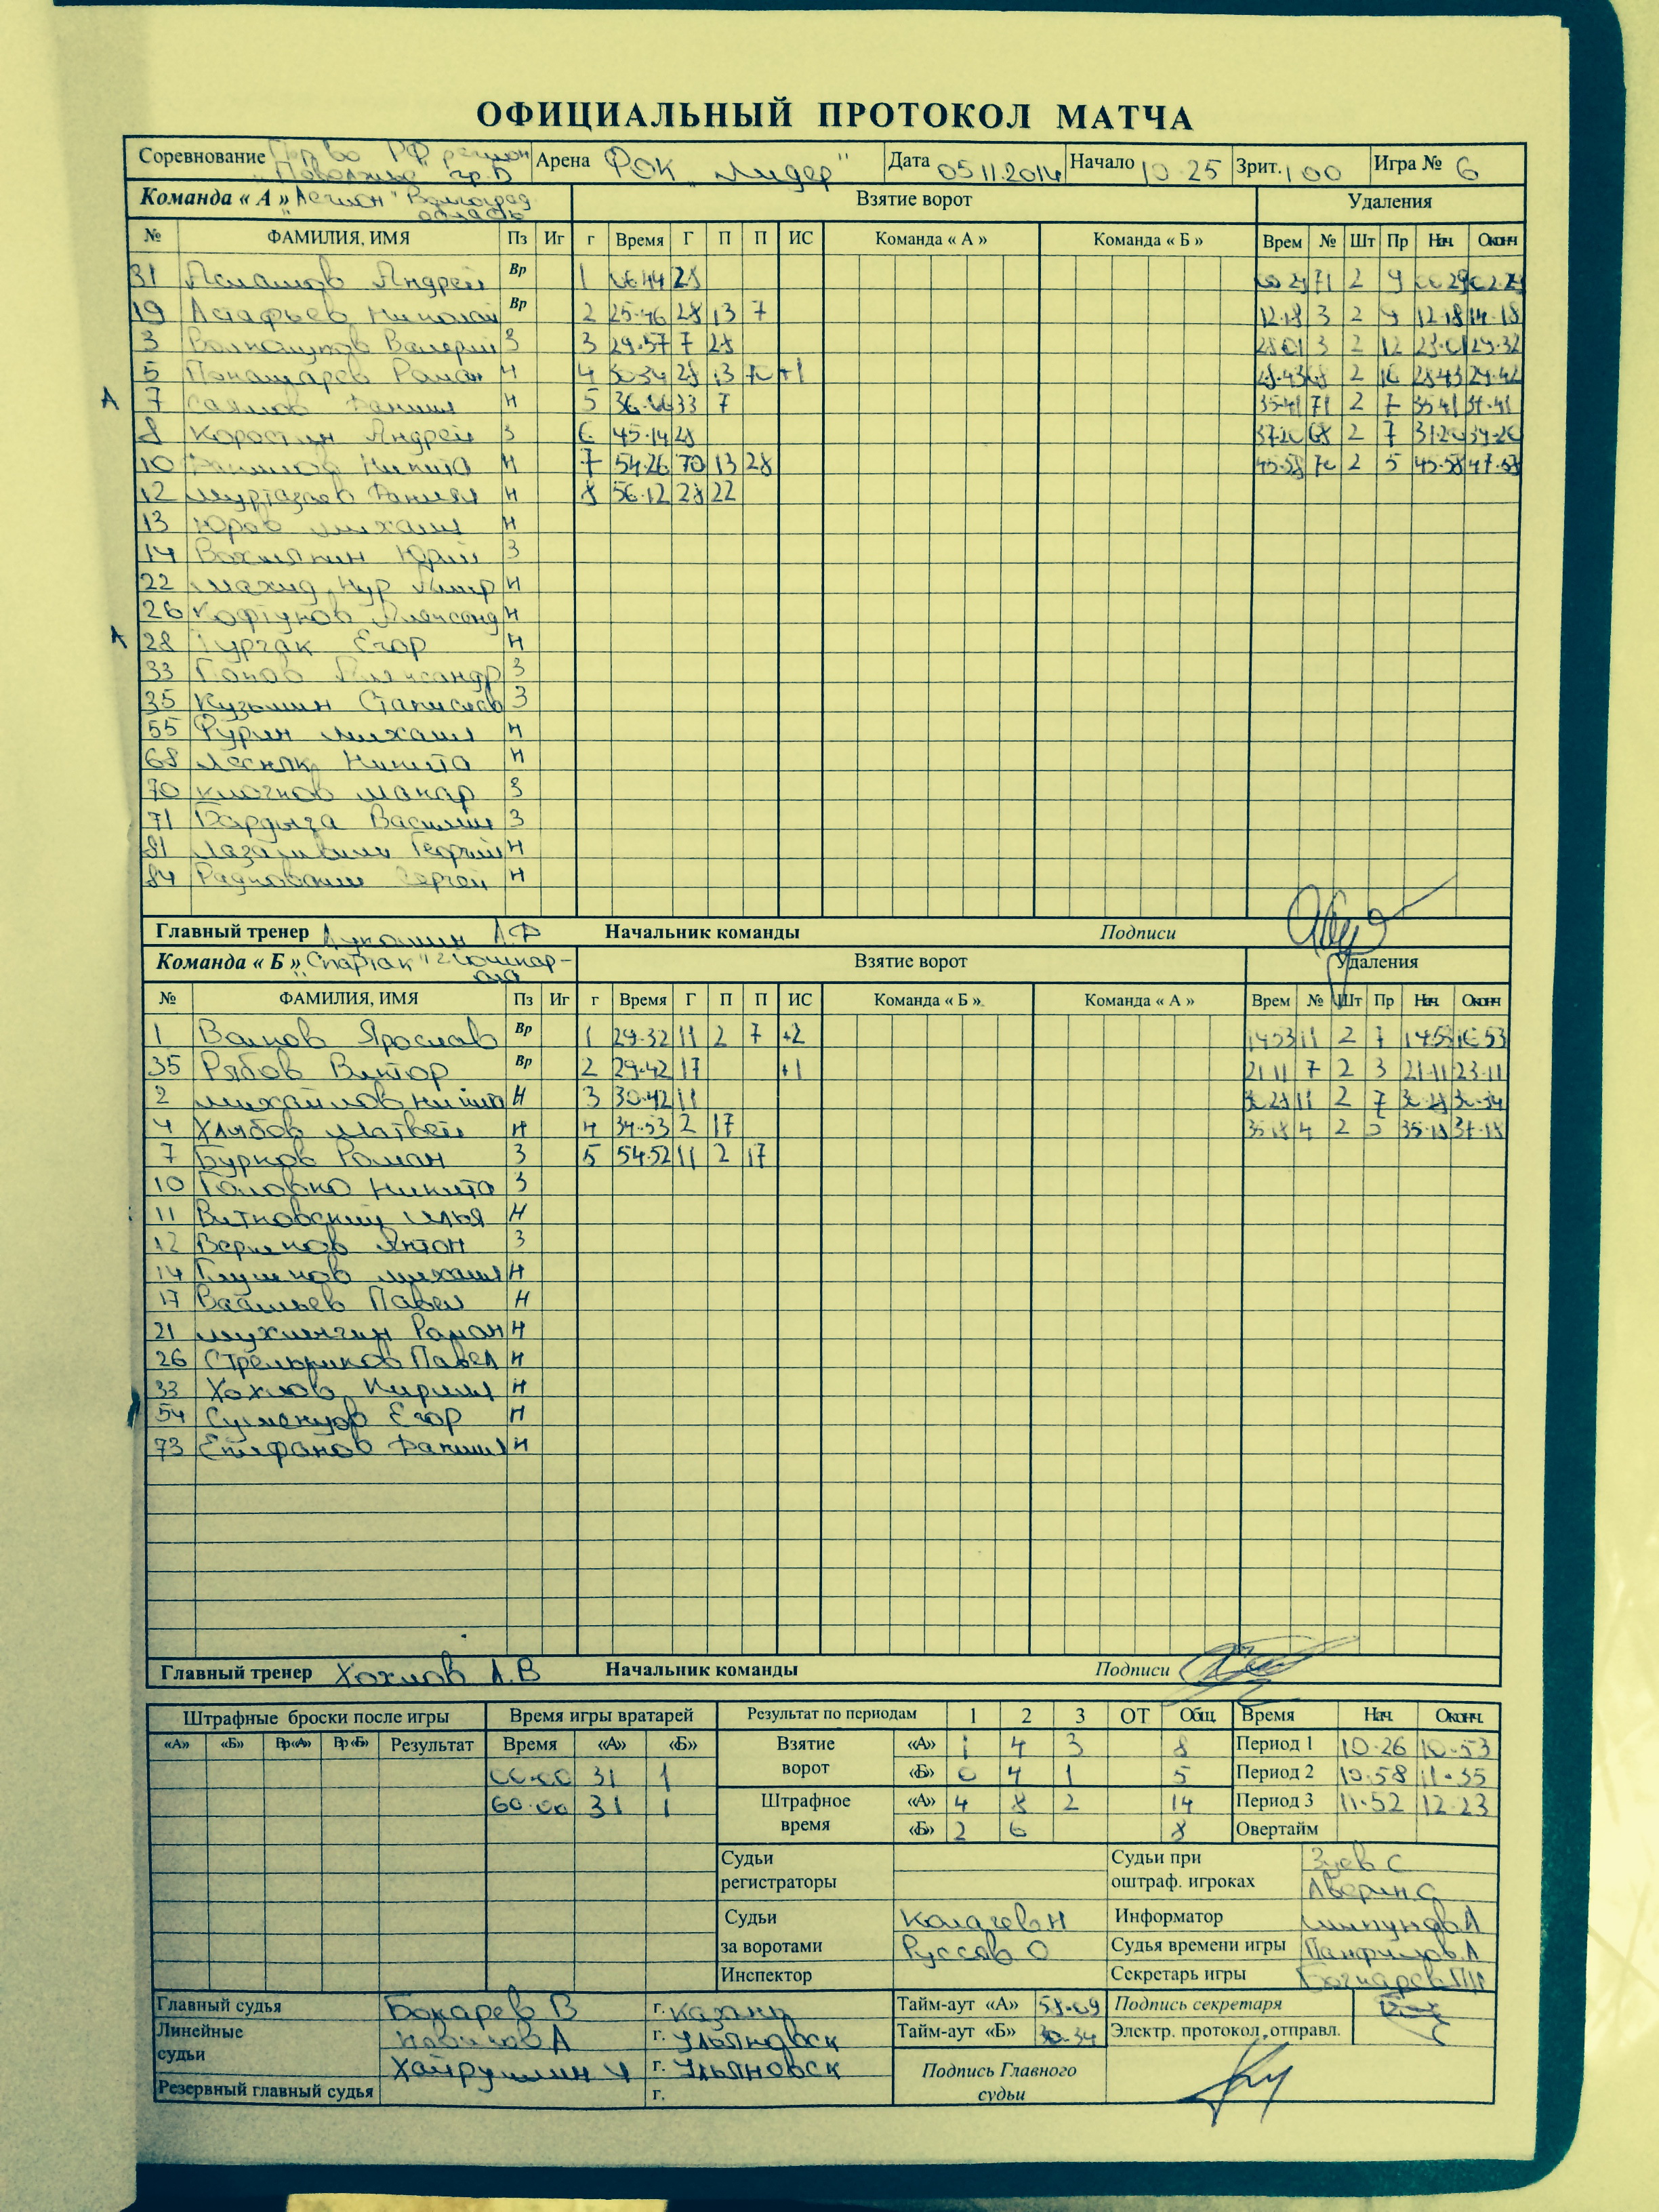 ОФИЦИАЛЬНЫЙ ПРОТОКОЛ МАТЧА
Соревнование РФ регион "Поволжье" гр. Б Арена ФОК "Лидер" Дата 05 11.2014 Начало 10 25 Зрит. 100 Игра № 6
Команда « А » "Легион" Волгоград область Взятие ворот Удаления
№ ФАМИЛИЯ, ИМЯ Пз Иг г Время Г П П ИС Команда « А » Команда « Б » Врем № Шт Пр Нач Оконч
31 Андрей Вр 1 06 44 28 00 29 71 2 9 00 29 02.29
19 Астафьев Николай Вр 2 25.46 28 13 7 12.18 3 2 9 12.18 14.18
3 Валерий З 3 29.57 7 28 28 01 3 2 12 28.01 29.32
5 Понамарев Роман Н 4 30 34 28 13 70 +1 28.43 68 2 10 28 43 29.42
А 7 Саямов Даниил Н 5 36.06 33 7 35.41 71 2 7 35 41 37.41
8 Коростин Андрей З 6 45.14 28 37 20 68 2 7 37.20 39.20
10 Данилов Никита Н 7 54.26 70 13 28 45.58 70 2 5 45.58 47.58
12 Муртазаев Даниял Н 8 56.12 28 22
13 Юров Михаил Н
14 Вахмянин Юрий З
22 Махмд Нур Амир Н
26 Кофтунов Александ Н
А 28 Гургак Егор Н
33 Попов Александр З
35 Кузьмин Станислав З
55 Фурин Михаил Н
68 Лесняк Никита Н
70 Клочков Макар З
71 Бардыга Василий З
81 Георгий Н
84 Радковский Сергей Н
Главный тренер Лукошин А.Ф Начальник команды Подписи
Команда « Б » "Спартак" 2 Йошкар-Ола Взятие ворот Удаления
№ ФАМИЛИЯ, ИМЯ Пз Иг г Время Г П П ИС Команда « Б » Команда « А » Врем № Шт Пр Нач Оконч
1 Волков Ярослав Вр 1 29.32 11 2 7 +2 14 53 11 2 7 14.53 16.53
35 Рябов Виктор Вр 2 29.42 17 +1 21.11 7 2 3 21.11 23.11
2 Михайлов Никита Н 3 30.42 11 30 28 11 2 7 30.28 30.34
4 Хлябов Матвей Н 4 34.53 2 17 35 18 4 2 5 35.18 37.18
7 Бурков Роман З 5 54.52 11 2 17
10 Головко Никита З
11 Витковский Илья Н
12 Антон З
14 Глушков Михаил Н
17 Васильев Павел Н
21 Роман Н
26 Стрельников Павел Н
33 Хохлов Кирилл Н
54 Егор Н
73 Епифанов Даниил Н
Главный тренер Хохлов А.В Начальник команды Подписи
Штрафные броски после игры Время игры вратарей Результат по периодам 1 2 3 ОТ Общ. Время Нач. Оконч.
«А» «Б» Вр«А» Вр«Б» Результат Время «А» «Б» Взятие ворот «А» 1 4 3 8 Период 1 10.26 10.53
00.00 31 1 «Б» 0 4 1 5 Период 2 10.58 11.35
60.00 31 1 Штрафное время «А» 4 8 2 14 Период 3 11.52 12.23
«Б» 2 6 8 Овертайм
Судьи регистраторы Судьи при оштраф. игроках Зуев С
Аверин С
Судьи за воротами Калачев Н Информатор Шипунов А
Руссов О Судья времени игры Панфилов А
Инспектор Секретарь игры
Главный судья Бокарев В г. Казань Тайм-аут «А» 58.09 Подпись секретаря
Линейные судьи А г. Ульяновск Тайм-аут «Б» 30.34 Электр. протокол отправл.
Хайруллин Ч г. Ульяновск Подпись Главного судьи
Резервный главный судья г.